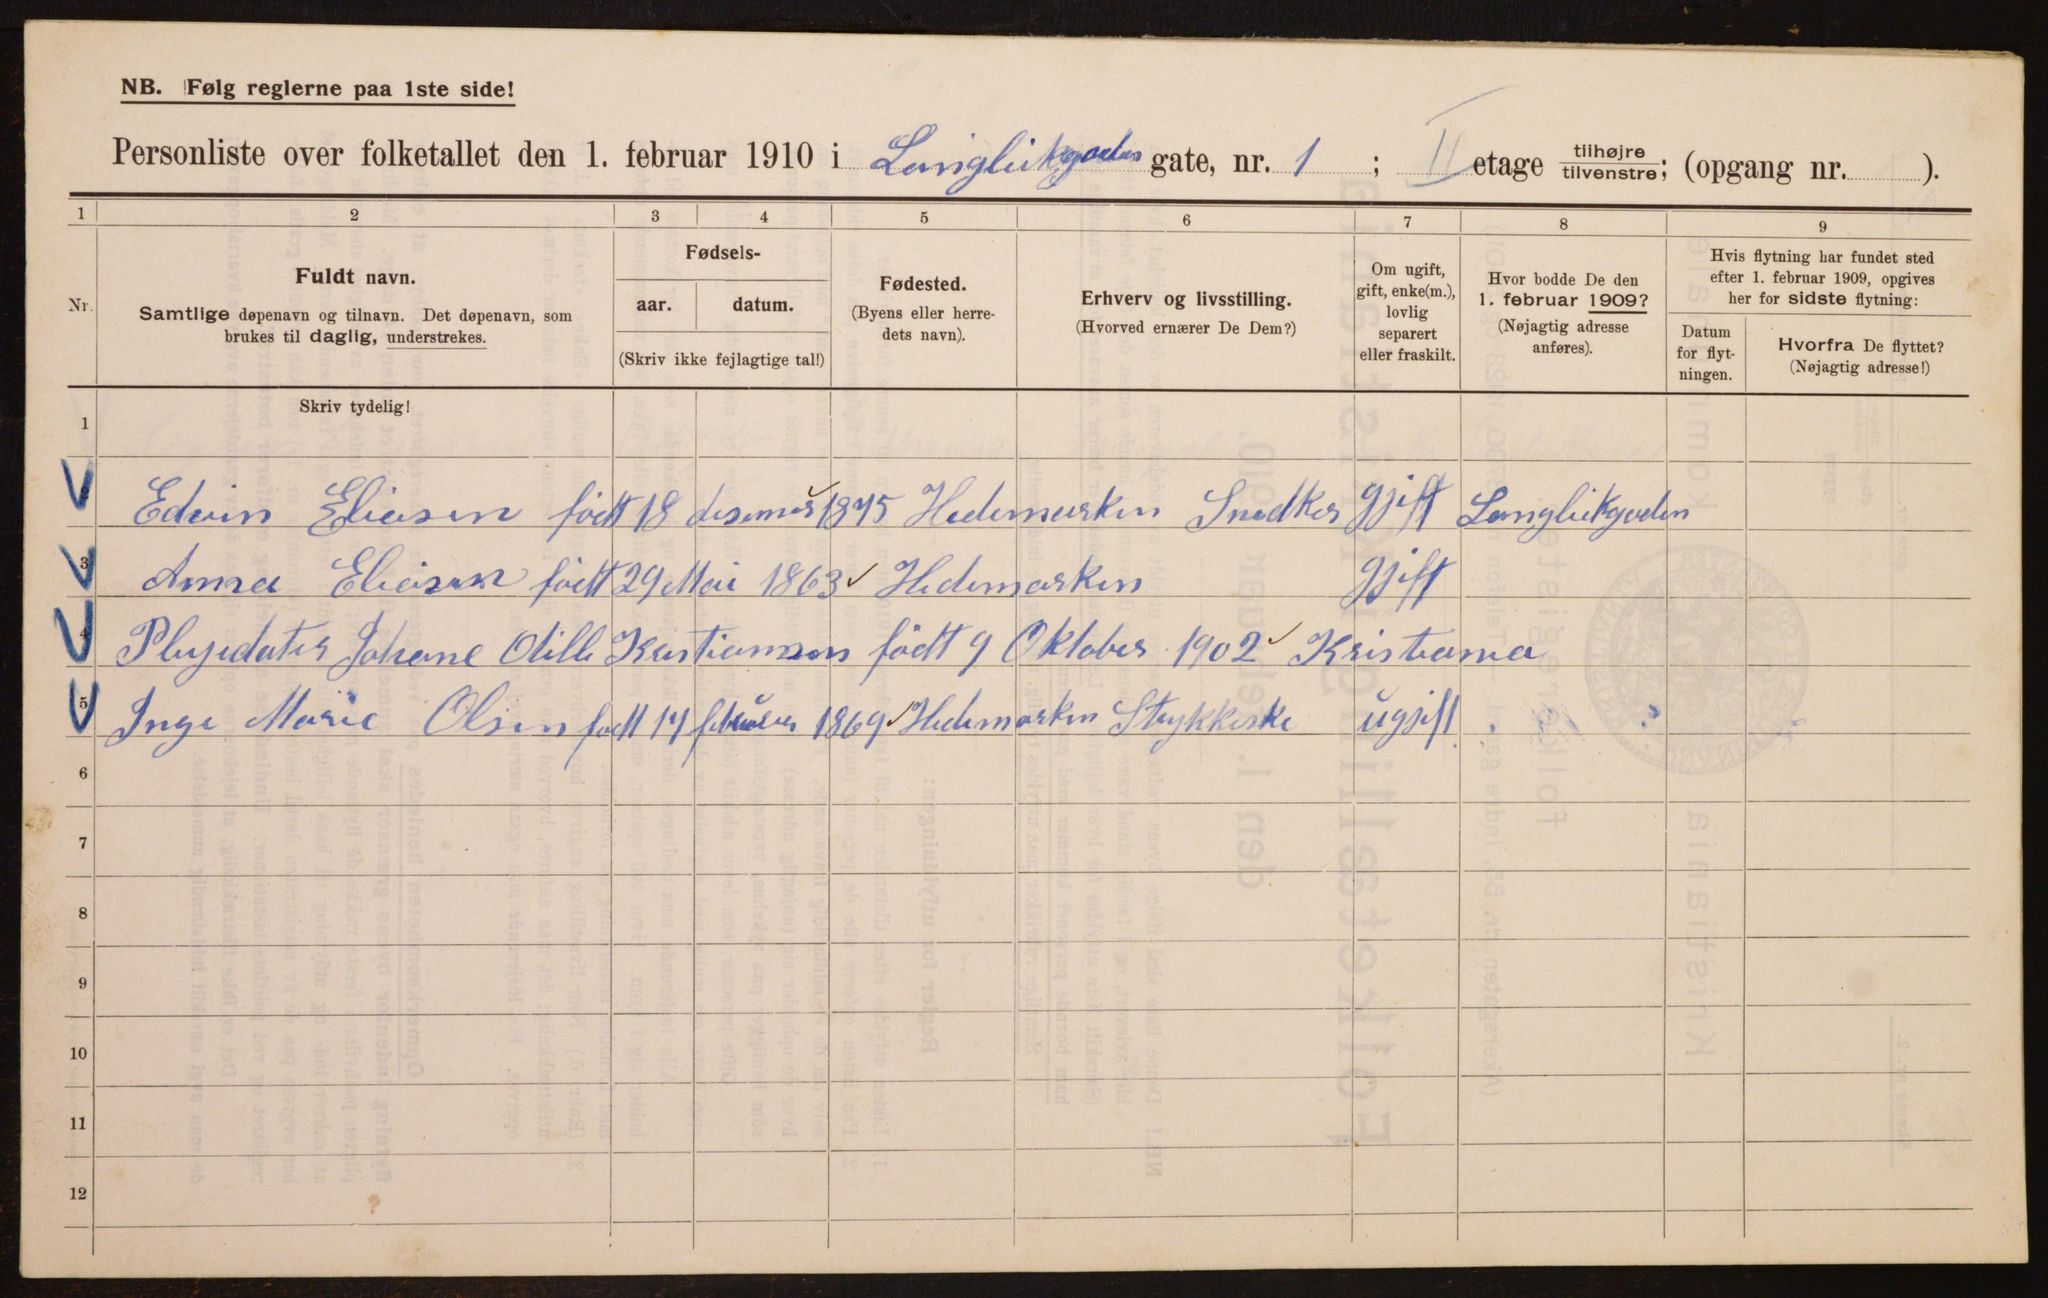 NB. Følg reglerne paa 1ste side!
Personliste over folketallet den 1. februar 1910 i Langleikgaden gate, nr. 1 ; II etage tilhøjre/tilvenstre; (opgang nr. ).
1 2 3 4 5 6 7 8 9
Nr.
Fuldt navn.
Samtlige døpenavn og tilnavn. Det døpenavn, som
brukes til daglig, understrekes.
Fødsels-
aar. datum.
(Skriv ikke fejlagtige tal!)
Fødested.
(Byens eller herre-
dets navn).
Erhverv og livsstilling.
(Hvorved ernærer De Dem?)
Om ugift,
gift, enke(m.),
lovlig
separert
eller fraskilt.
Hvor bodde De den
1. februar 1909?
(Nøjagtig adresse
anføres).
Hvis flytning har fundet sted
efter 1. februar 1909, opgives
her for sidste flytning:
Datum
for flyt-
ningen.
Hvorfra De flyttet?
(Nøjagtig adresse!)
Skriv tydelig!
1
2 Edvin Eliasen født 18 1875 Hedemarken Snedker gjift Langleikgaden
3 Anna Eliasen født 29 Mai 1863 Hedemarken gjift
4 Plejedater Johane Otilie Kristiansen født 9 Oktober 1902 Kristiania
5 Inge Marie Olsen født 17 februar 1869 Hedemarken Strykkeske ugjift " " "
6
7
8
9
10
11
12